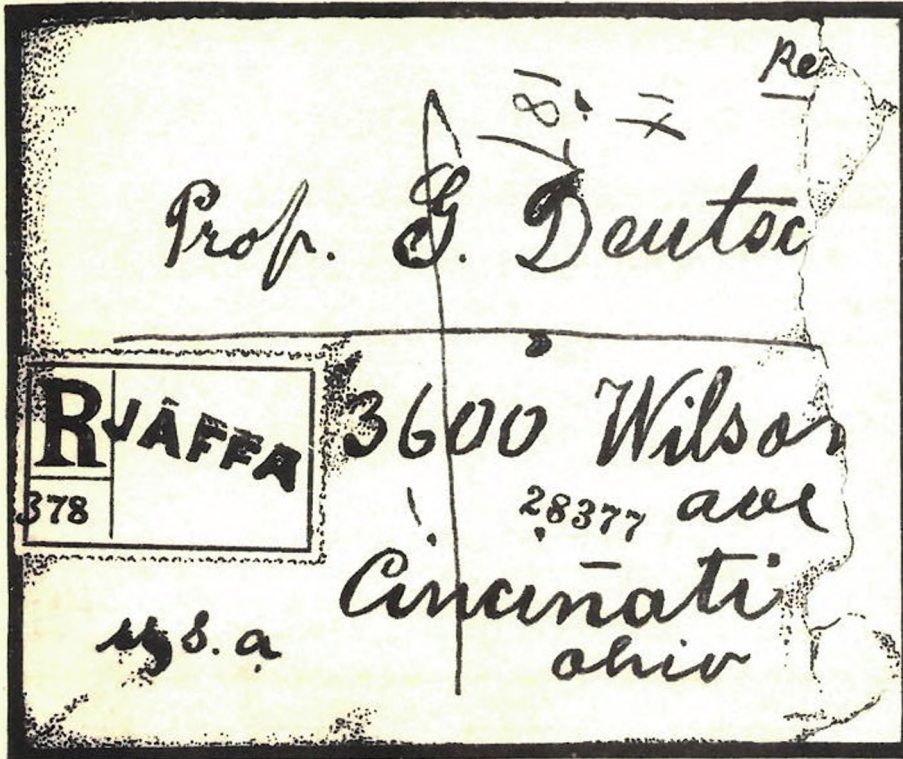 Re
Prof. G. Deutsc
R JAFFA
378
3600 Wilson
28377 ave
Cincin̄ati
ohio
u.s.a